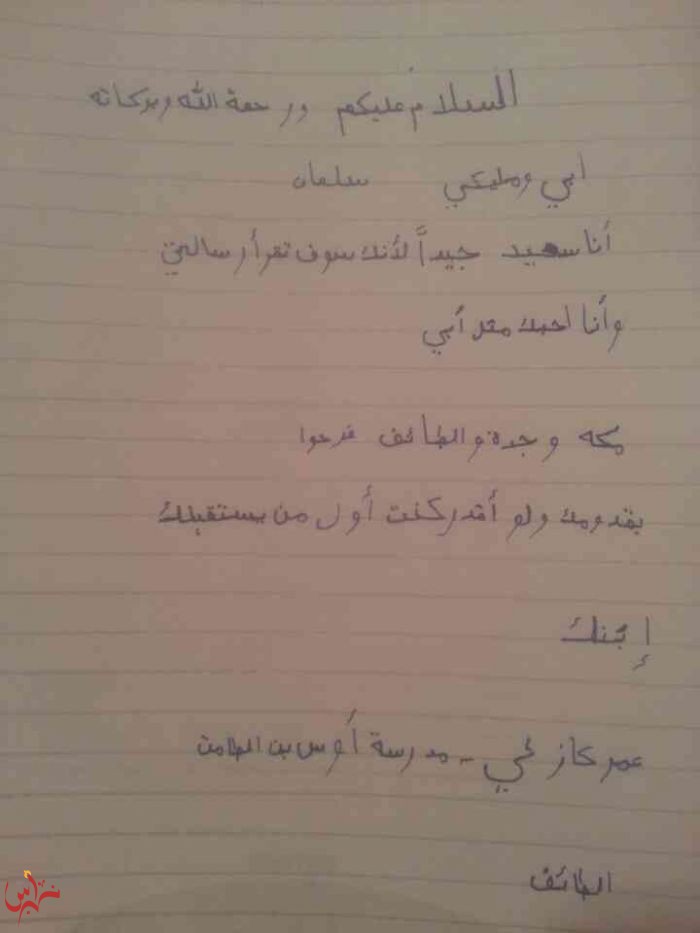 السلام عليكم ورحمة الله وبركاته
ابي ومليكي سلمان
أنا سعيد جيداً لأنك سوف تقرأ رسالتي
وأنا احبك مثل أبي
مكه وجدة والطائف فرحوا
بقدومك ولو أقدر كنت أول من يستقبلك
إبنك
عمر كاز - مدرسة أوس بن الصامت
الطائف